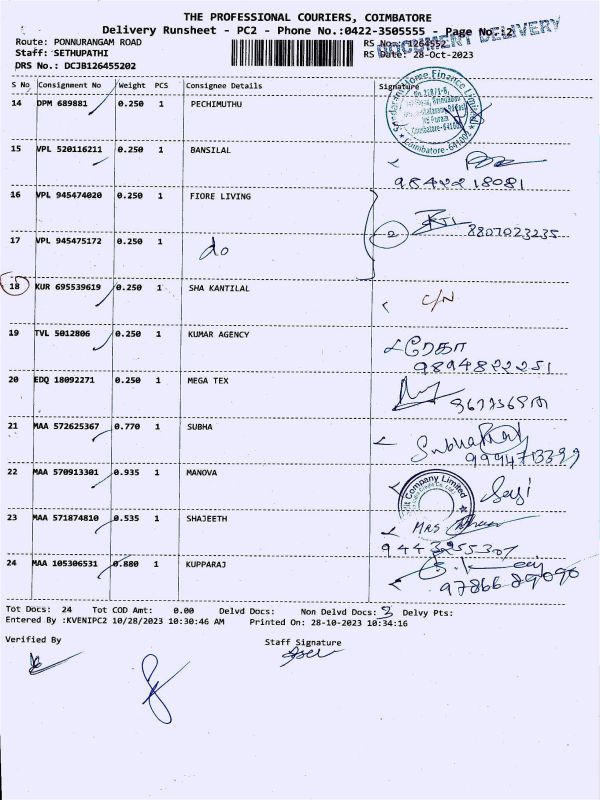 THE PROFESSIONAL COURIERS, COIMBATORE
Delivery Runsheet - PC2 - Phone No.:0422-3505555 - Page No.:2
DOCUMENT DELIVERY
Route: PONNURANGAM ROAD RS No.: 1264552
Staff: SETHUPATHI RS Date: 28-Oct-2023
DRS No.: DCJB126455202
S No Consignment No Weight PCS Consignee Details Signature
14 DPM 689881 0.250 1 PECHIMUTHU
Home Finance Limited
Coimbatore-641002
15 VPL 520116211 0.250 1 BANSILAL
9842218081
16 VPL 945474020 0.250 1 FIORE LIVING
2 8807023235
17 VPL 945475172 0.250 1 do
18 KUR 695539619 0.250 1 SHA KANTILAL C/N
19 TVL 5012806 0.250 1 KUMAR AGENCY
9894822251
20 EDQ 18092271 0.250 1 MEGA TEX
21 MAA 572625367 0.770 1 SUBHA
9994713399
22 MAA 570913301 0.935 1 MANOVA
Company Limited
23 MAA 571874810 0.535 1 SHAJEETH MRS
9443255307
24 MAA 105306531 0.880 1 KUPPARAJ
9786689090
Tot Docs: 24 Tot COD Amt: 0.00 Delvd Docs: Non Delvd Docs: 3 Delvy Pts:
Entered By :KVENIPC2 10/28/2023 10:30:46 AM Printed On: 28-10-2023 10:34:16
Verified By Staff Signature